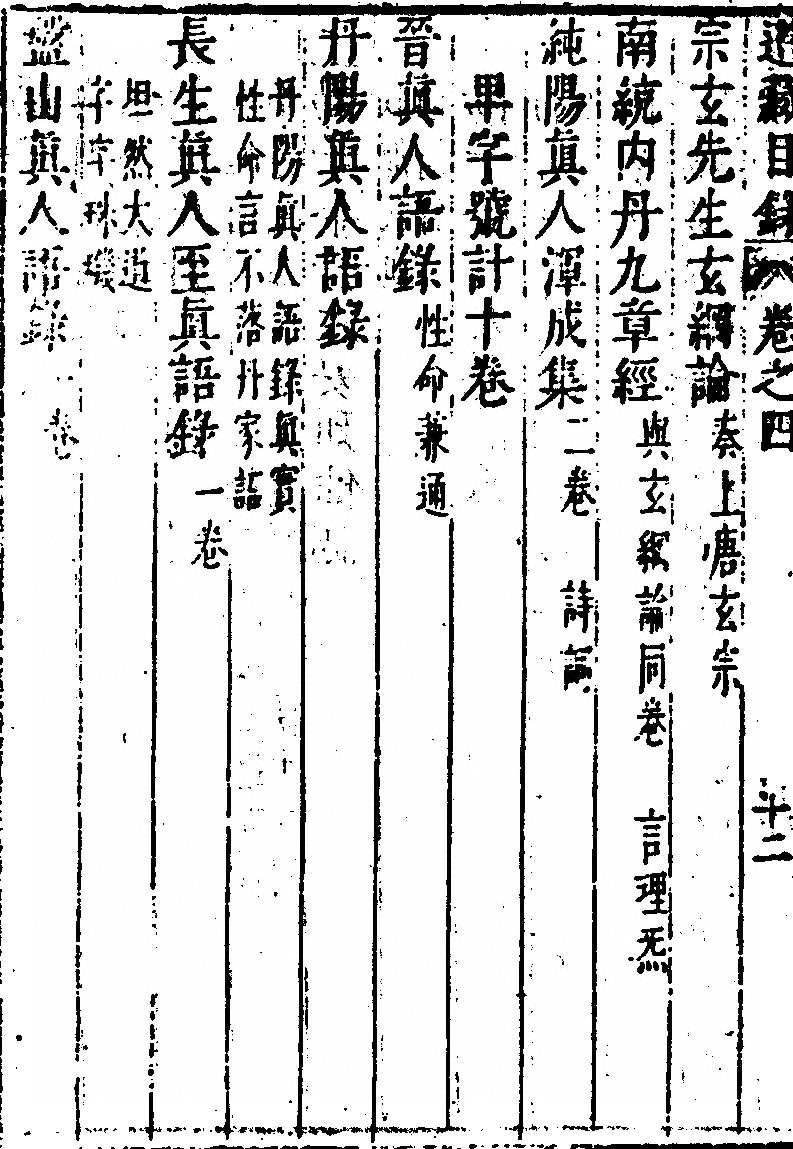 道藏目錄 卷之四 十二
宗玄先生玄綱論 奏上唐玄宗
南統内丹九章經 與玄綱論同卷 言理炁
純陽真人渾成集 二卷 詩詞
甲字號計十卷
晉真人語錄 性命兼通
丹陽真人語錄
丹陽真人語錄真實
性命言不落丹家詁
長生真人至真語錄 一卷
坦然大道
字字珠璣
盤山真人語錄 卷